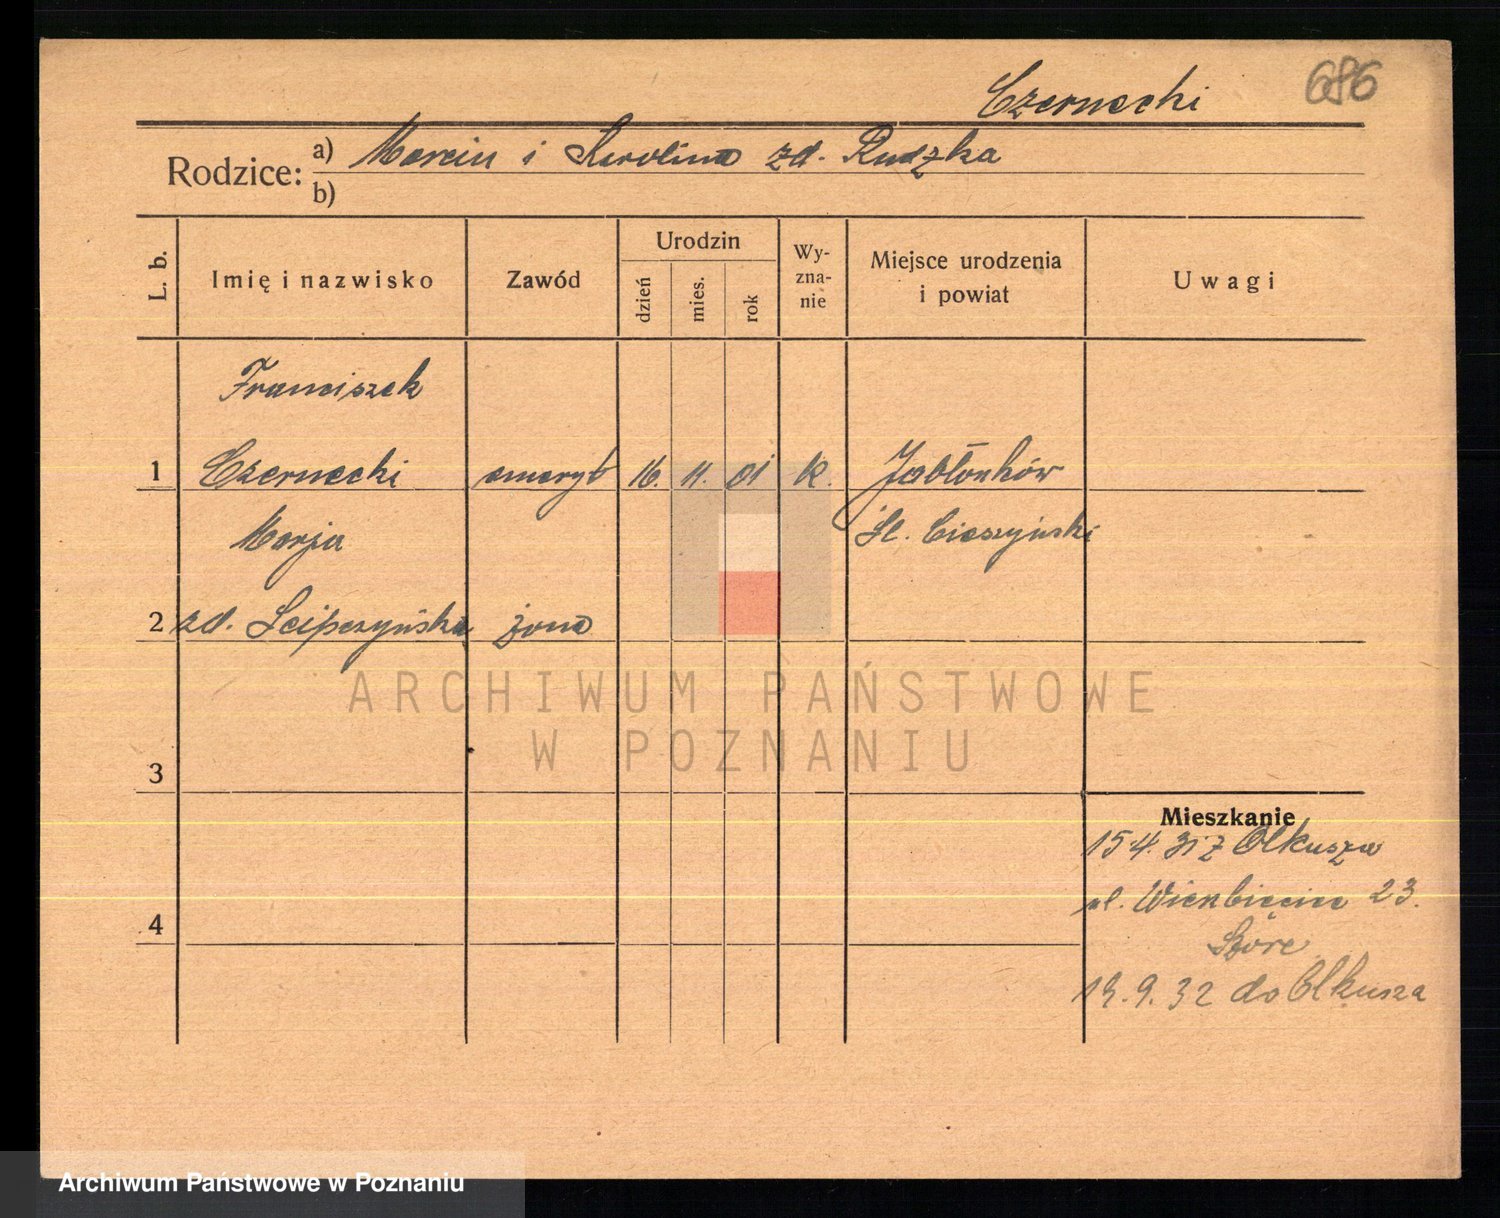 Czernecki 686
Rodzice: a) Marcin i Karolina zd. Rudzka
b)
L. b. Imię i nazwisko Zawód Urodzin dzień mies. rok Wy-zna-nie Miejsce urodzenia i powiat Uwagi
Franciszek
1 Czernecki emeryt 16. 11. 01 k. Jabłonków
Marja Śl. Cieszyński
2 zd. Scipczyńska żona
3
4
Mieszkanie
15 4. 31 z Olkusza
ul. 23.
19. 9. 32 do Olkusza
ARCHIWUM PAŃSTWOWE
W POZNANIU
Archiwum Państwowe w Poznaniu